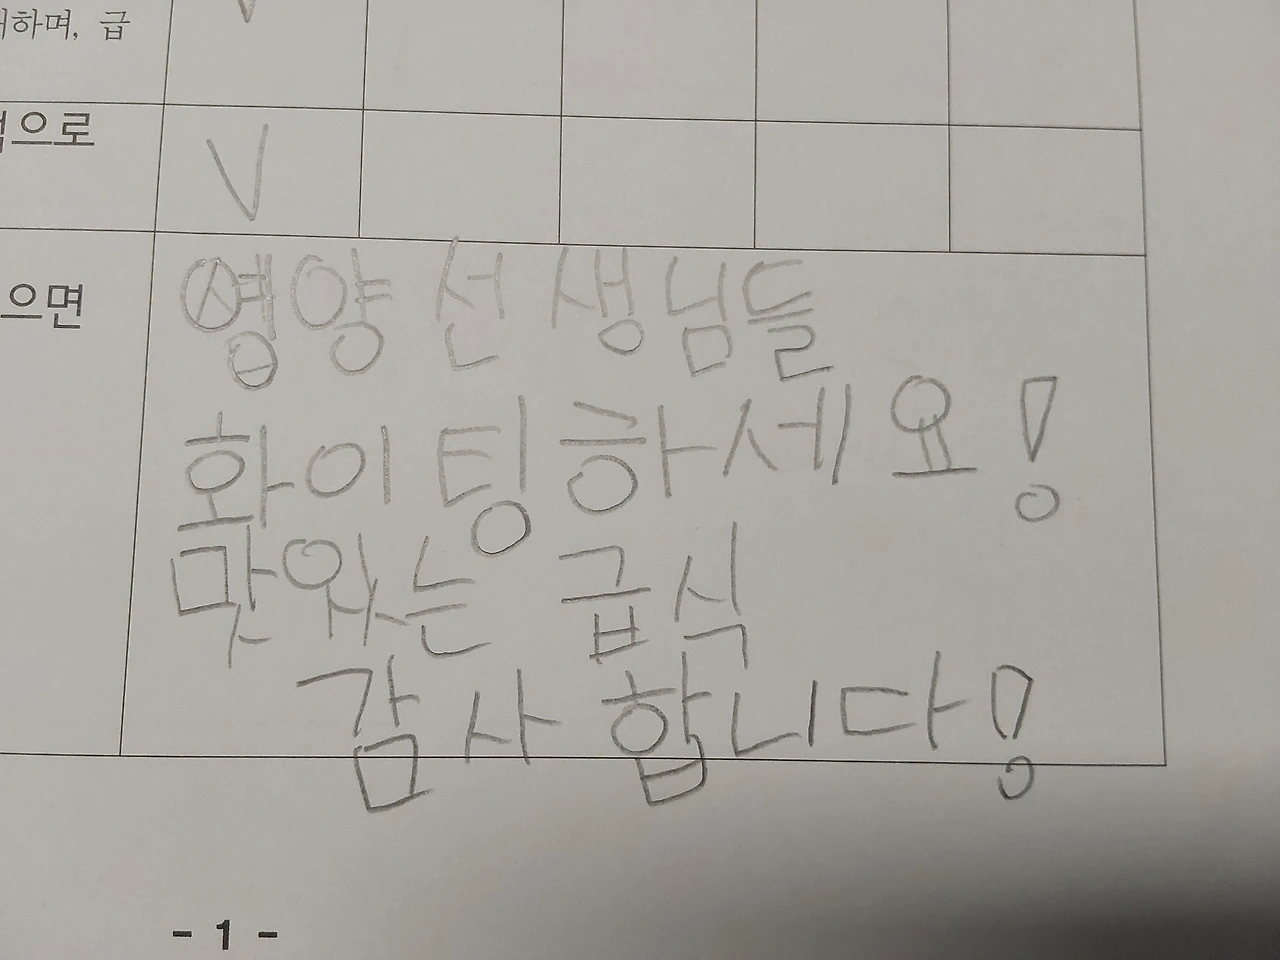 하며, 급
V
으로
V
으면
영양 선생님들
화이팅 하세요!
맛있는 급식
감사합니다!
- 1 -